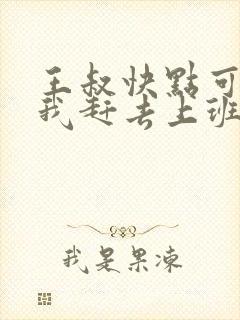 王叔快點可
我赶去上班
我是果凍